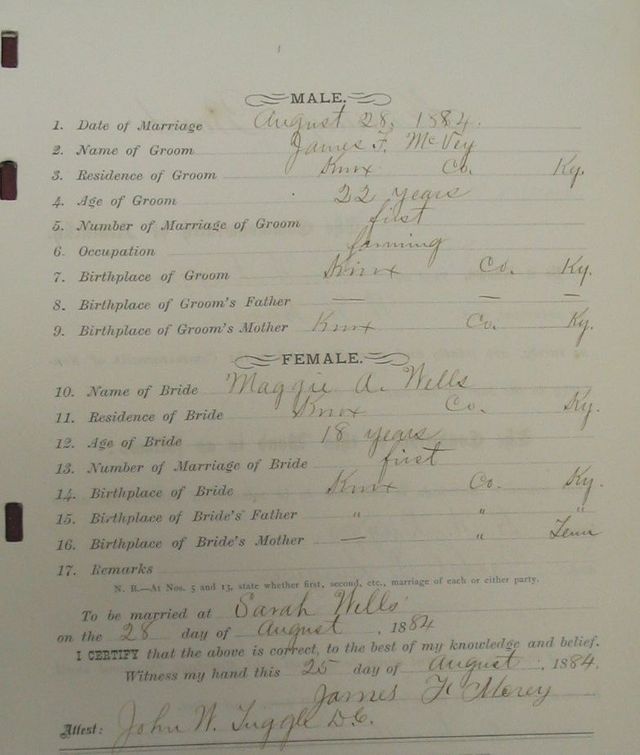 MALE.
1. Date of Marriage August 28, 1884.
2. Name of Groom James F. McVey
3. Residence of Groom Knox Co. Ky.
4. Age of Groom 22 years
5. Number of Marriage of Groom first
6. Occupation farming
7. Birthplace of Groom Knox Co. Ky.
8. Birthplace of Groom's Father — — —
9. Birthplace of Groom's Mother Knox Co. Ky.
FEMALE.
10. Name of Bride Maggie A. Wells
11. Residence of Bride Knox Co. Ky.
12. Age of Bride 18 years
13. Number of Marriage of Bride first
14. Birthplace of Bride Knox Co. Ky.
15. Birthplace of Bride's Father " " "
16. Birthplace of Bride's Mother — " Tenn
17. Remarks
N. B.—At Nos. 5 and 13, state whether first, second, etc., marriage of each or either party.
To be married at Sarah Wells
on the 28 day of August, 1884
I CERTIFY that the above is correct, to the best of my knowledge and belief.
Witness my hand this 25 day of August, 1884.
James F
Attest: John W. Tuggle D.C.